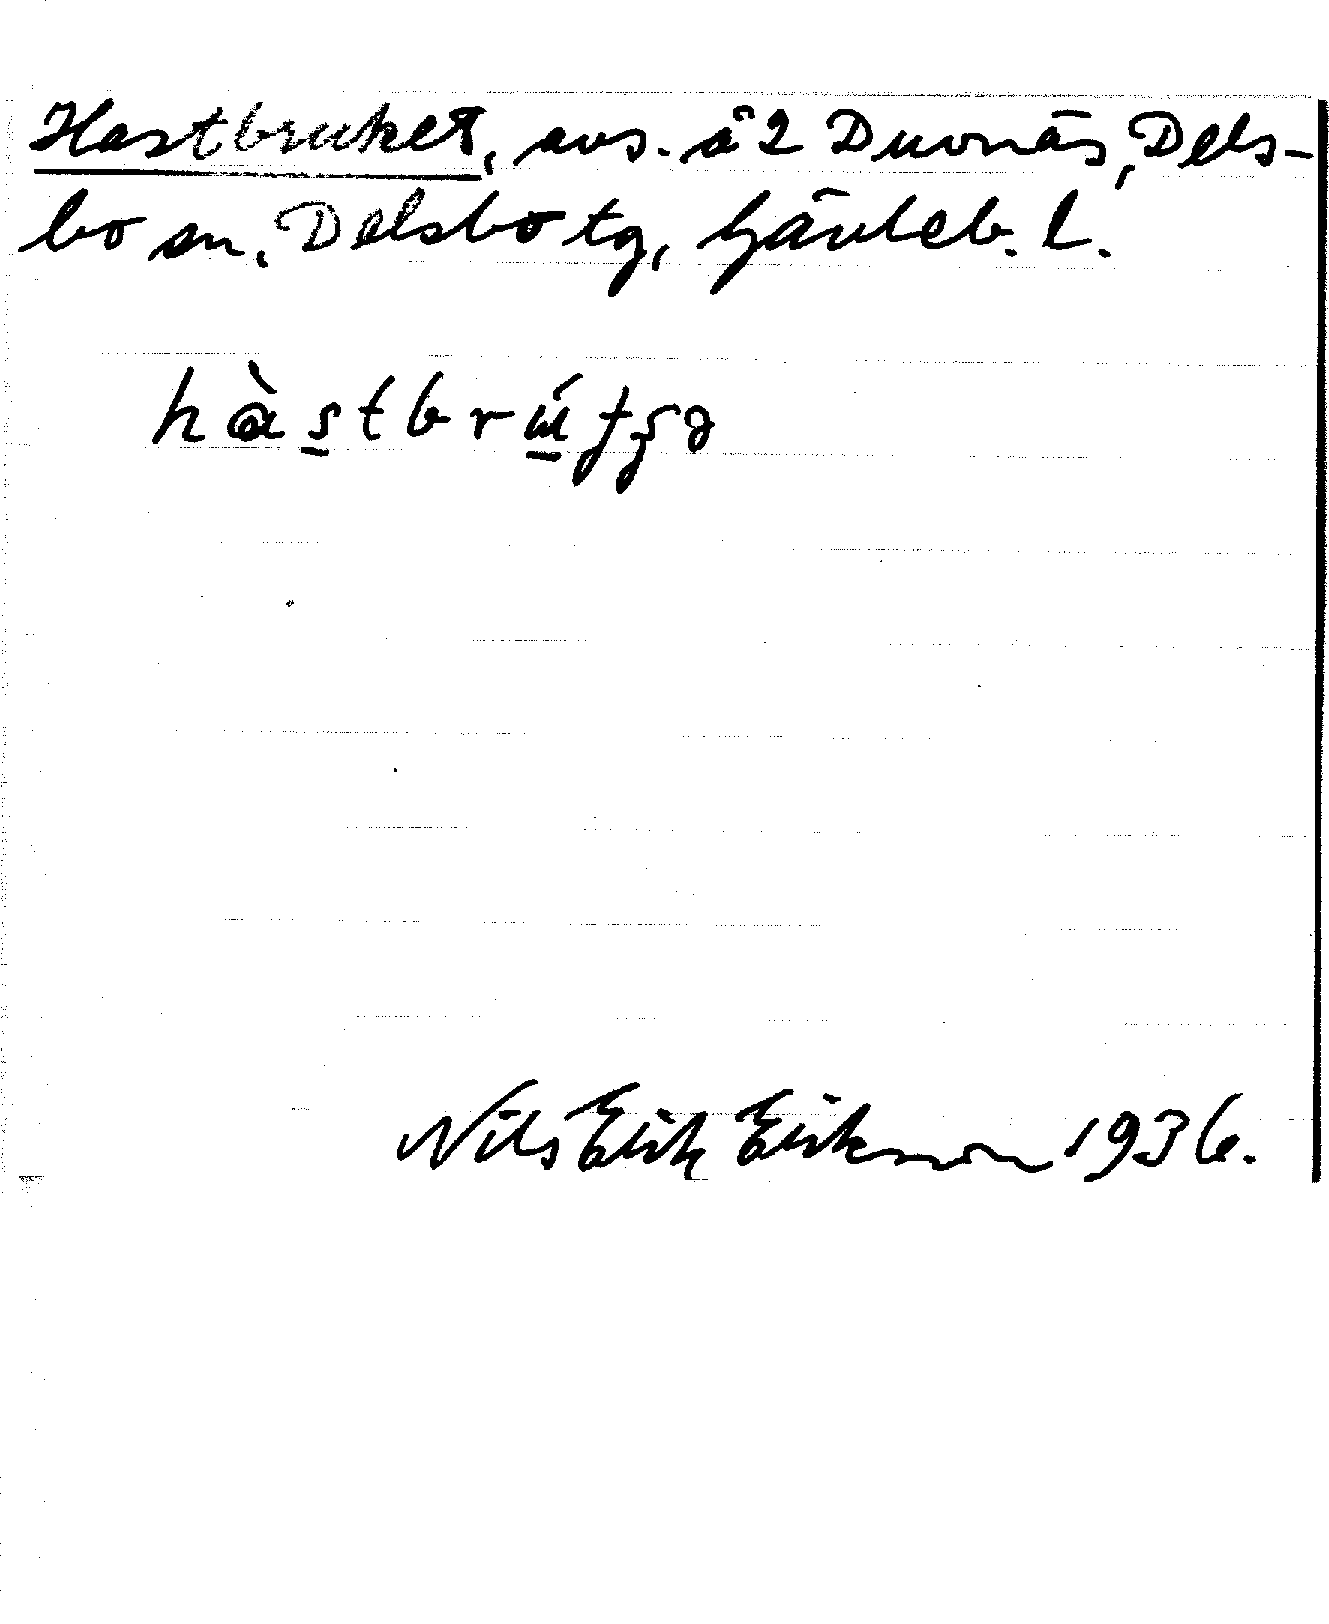 Hastbruket, avs. å 2 Duvnäs, Dels-
bo sn, Delsbo tg, Gävleb. l.
hàstbrútʂə
Nils Erik Erikson 1936.